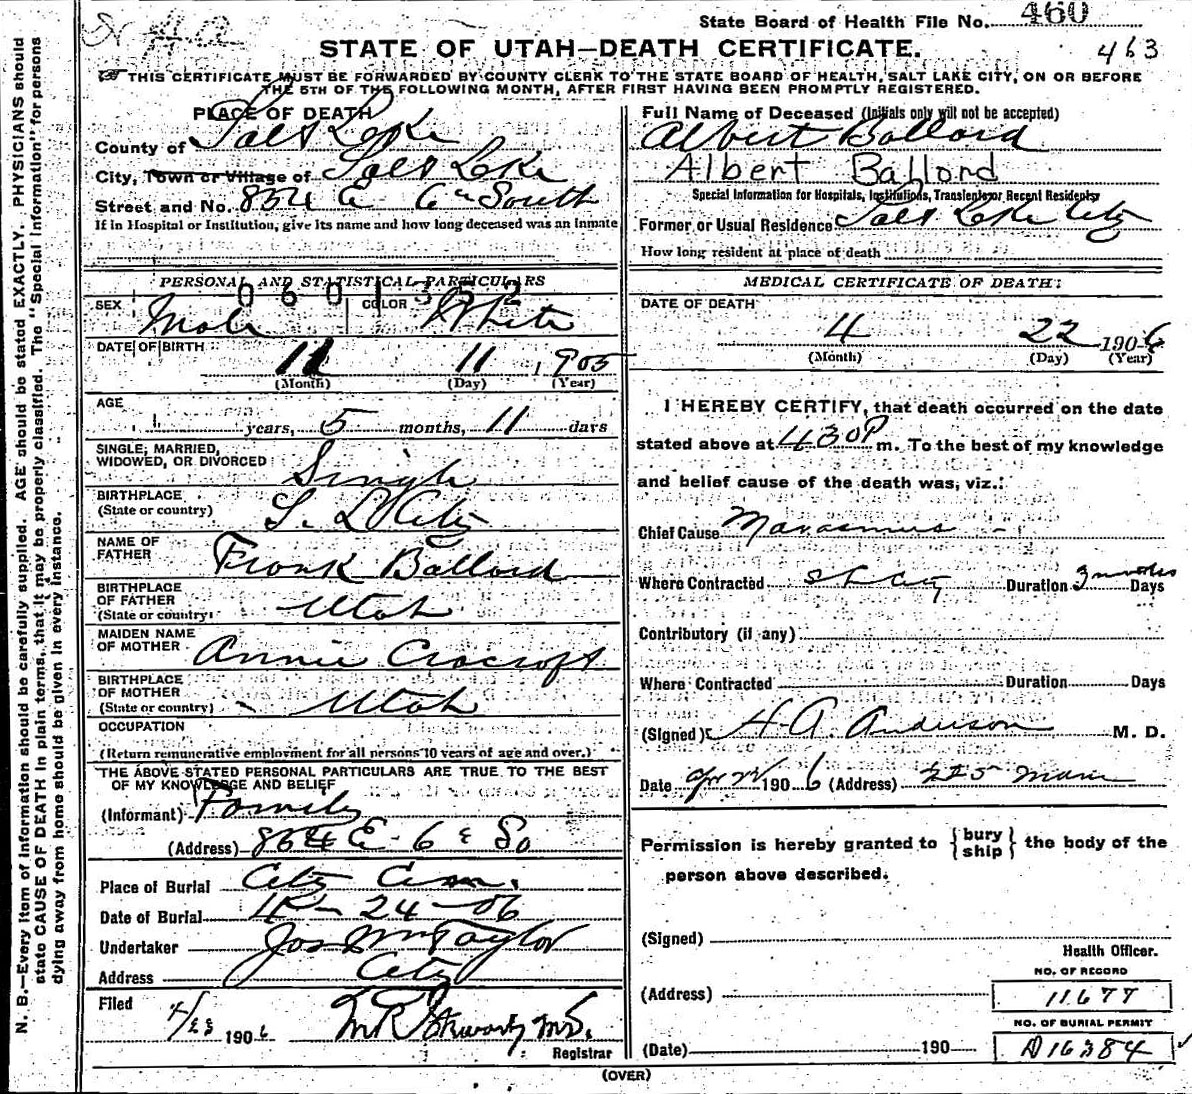 State Board of Health File No. 460
STATE OF UTAH—DEATH CERTIFICATE.
463
THIS CERTIFICATE MUST BE FORWARDED BY COUNTY CLERK TO THE STATE BOARD OF HEALTH, SALT LAKE CITY, ON OR BEFORE
THE 5TH OF THE FOLLOWING MONTH, AFTER FIRST HAVING BEEN PROMPTLY REGISTERED.
N. B.—Every item of information should be carefully supplied. AGE should be stated EXACTLY. PHYSICIANS should
state CAUSE OF DEATH in plain terms, that it may be properly classified. The "Special Information" for persons
dying away from home should be given in every instance.
PLACE OF DEATH
County of Salt Lake
City, Town or Village of Salt Lake
Street and No. 854 E 6th South
If in Hospital or Institution, give its name and how long deceased was an inmate
PERSONAL AND STATISTICAL PARTICULARS
0601352
SEX Male COLOR White
DATE OF BIRTH
11 11 1905
(Month) (Day) (Year)
AGE
years, 5 months, 11 days
SINGLE, MARRIED,
WIDOWED, OR DIVORCED Single
BIRTHPLACE
(State or country) S. L. City
NAME OF
FATHER Frank Ballard
BIRTHPLACE
OF FATHER
(State or country) Utah
MAIDEN NAME
OF MOTHER Annie Cracroft
BIRTHPLACE
OF MOTHER
(State or country) Utah
OCCUPATION
(Return remunerative employment for all persons 10 years of age and over.)
THE ABOVE STATED PERSONAL PARTICULARS ARE TRUE TO THE BEST
OF MY KNOWLEDGE AND BELIEF
(Informant) Family
(Address) 854 E 6th So
Place of Burial City Cem.
Date of Burial 4-24-06
Undertaker Jos Wm Taylor
Address City
Filed
4/23 1906 M.D.
Registrar
Full Name of Deceased (Initials only will not be accepted)
Albert Ballard
Albert Ballord
Special Information for Hospitals, Institutions, Transients or Recent Residents
Former or Usual Residence Salt Lake City
How long resident at place of death
MEDICAL CERTIFICATE OF DEATH:
DATE OF DEATH
4 22 1906
(Month) (Day) (Year)
I HEREBY CERTIFY, that death occurred on the date
stated above at 430P m. To the best of my knowledge
and belief cause of the death was, viz.:
Chief Cause Marasmus
Where Contracted S L City Duration 3 months Days
Contributory (if any)
Where Contracted Duration Days
(Signed) H. A. Anderson M. D.
Date Apr 22 1906 (Address) 225 Main
Permission is hereby granted to {bury
ship} the body of the
person above described.
(Signed)
Health Officer.
(Address)
NO. OF RECORD
11677
NO. OF BURIAL PERMIT
A16384
(Date) 190
(OVER)